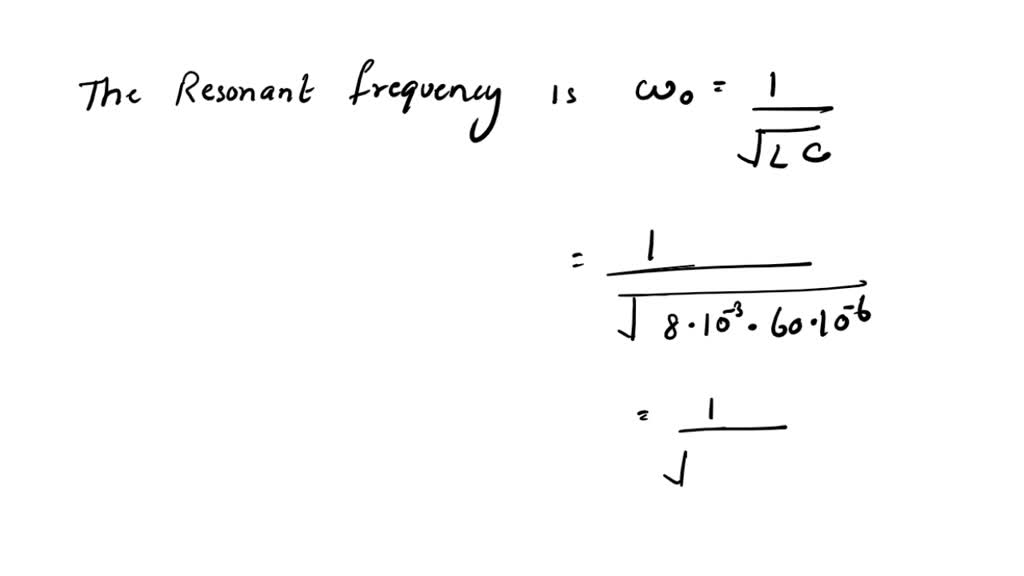 The Resonant frequency is ω₀ = 1/√LC
= 1/√8·10⁻³·60·10⁻⁶
= 1/√